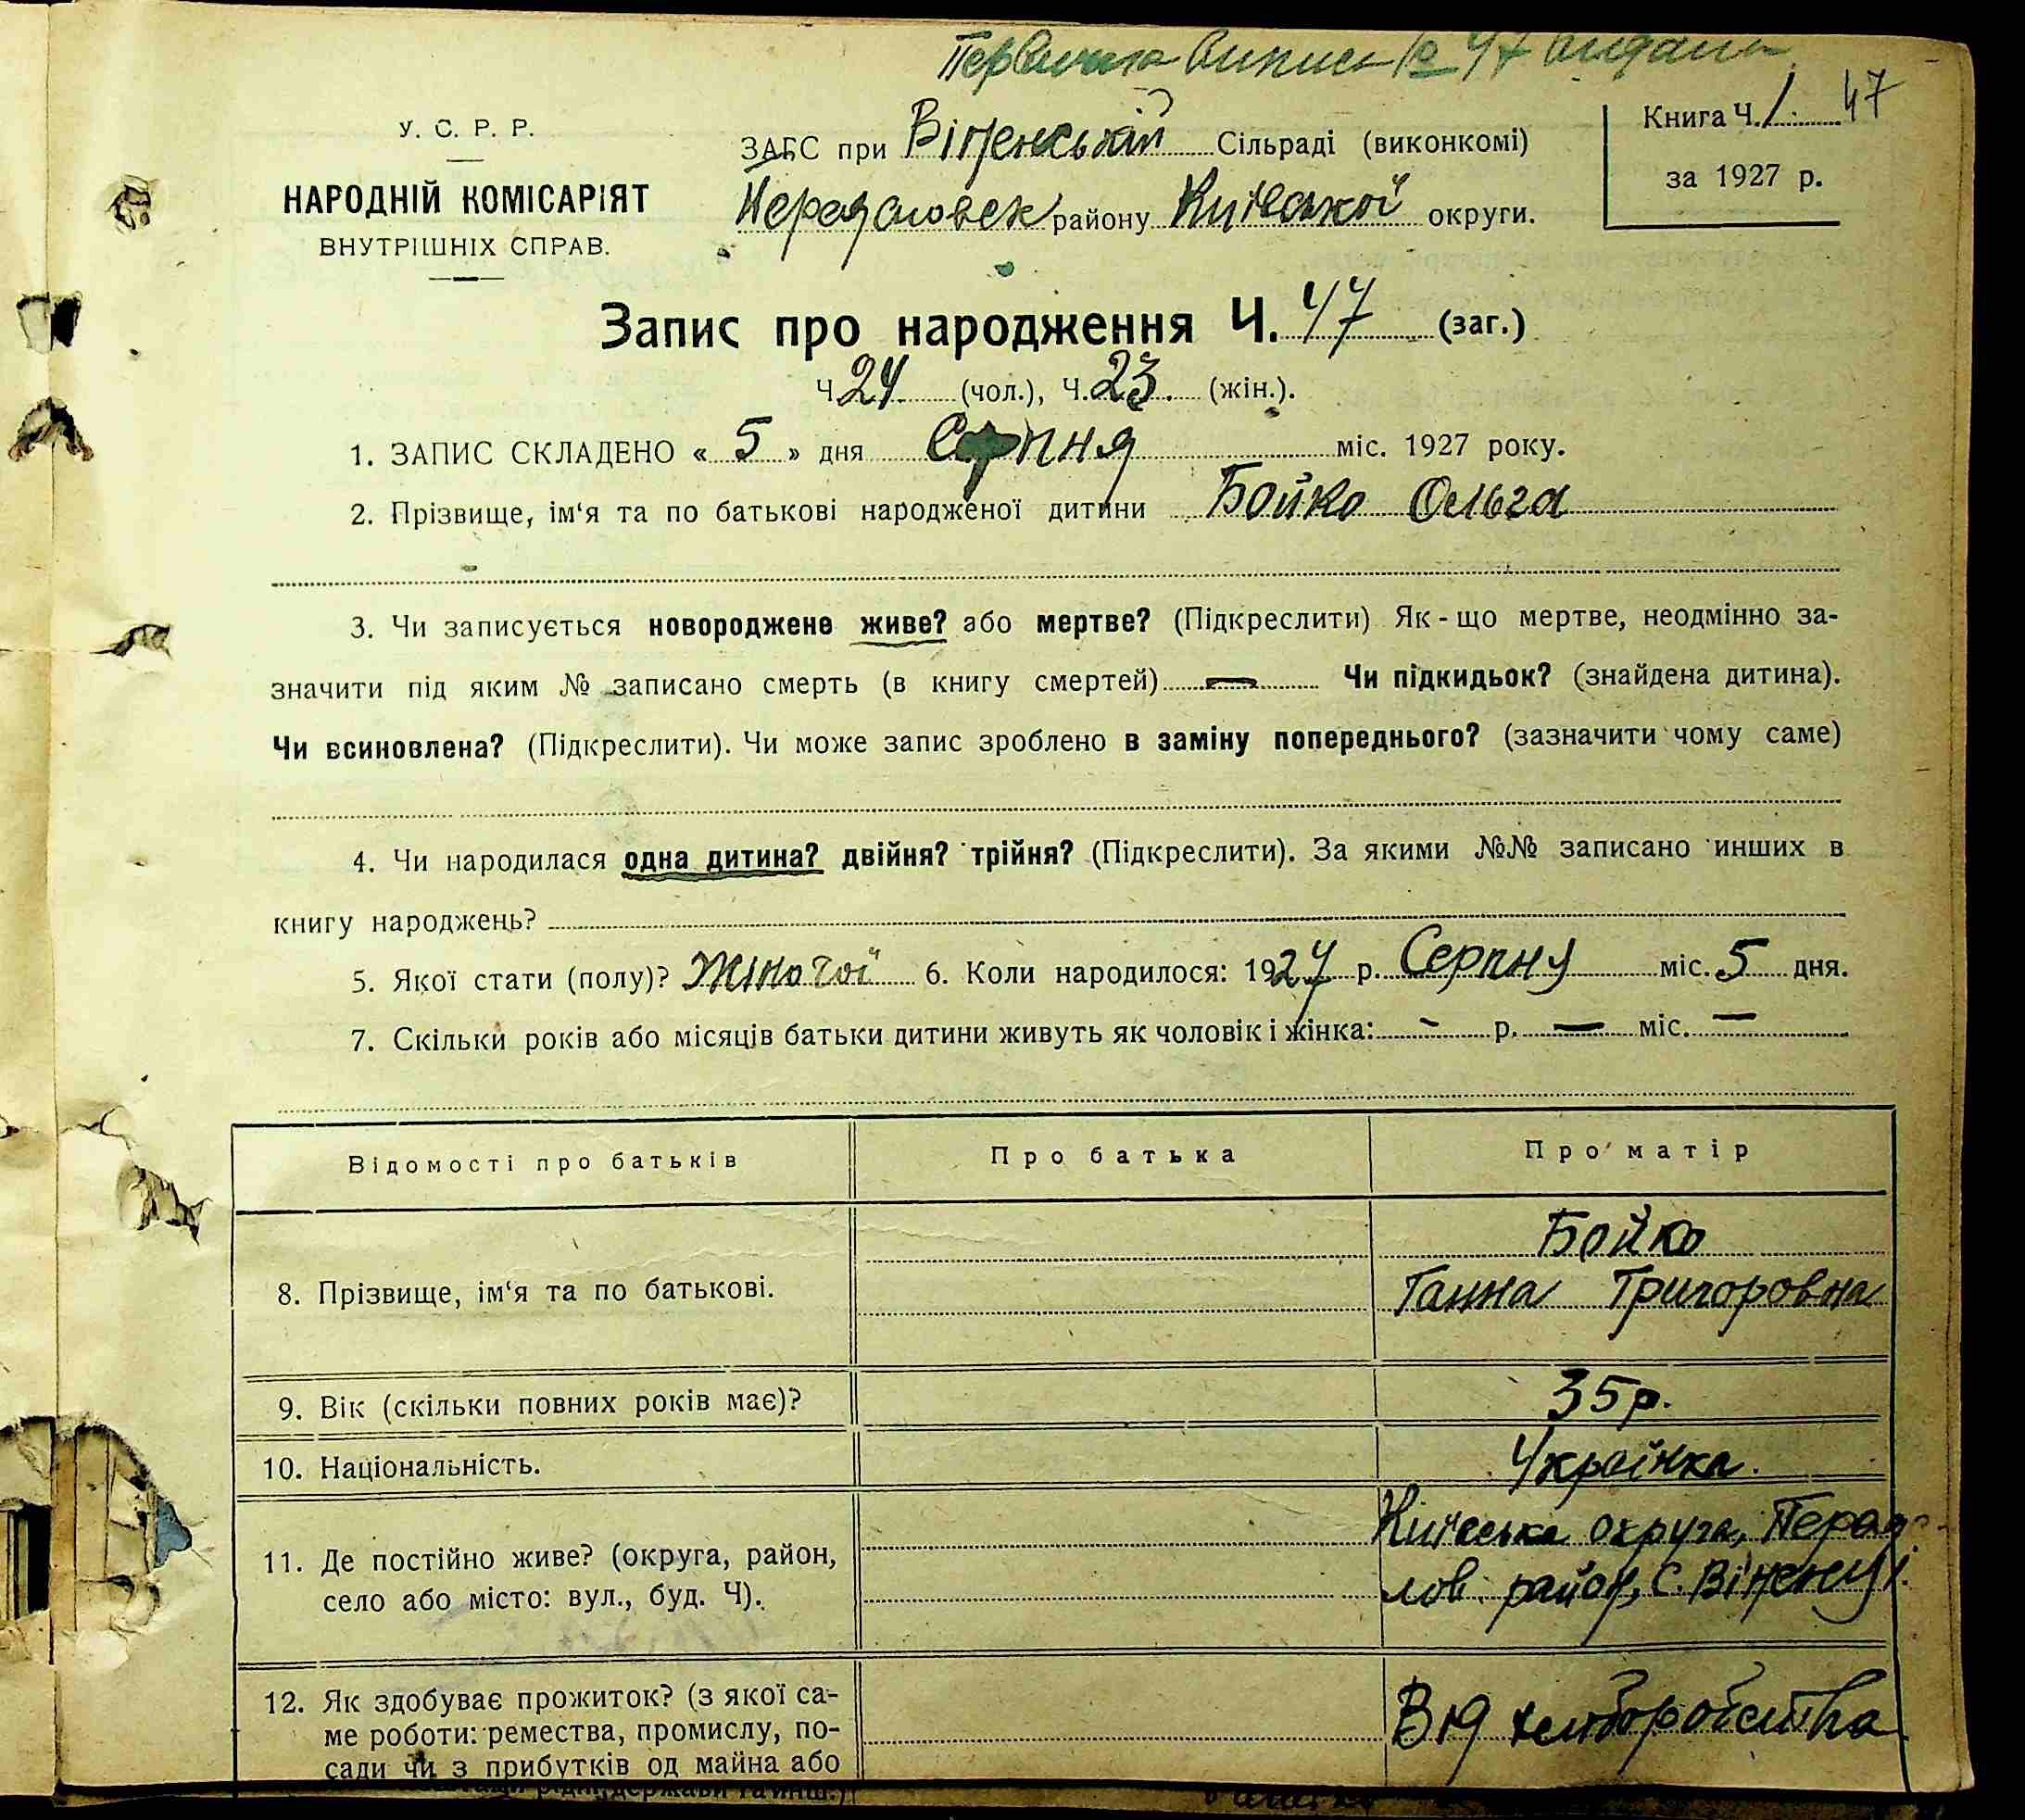 Первична Випись № 47 видана
У. С. Р. Р.
НАРОДНІЙ КОМІСАРІЯТ
ВНУТРІШНІХ СПРАВ.
ЗАГС при Віненській Сільраді (виконкомі)
району Київської округи.
Книга Ч. 1 47
за 1927 р.
Запис про народження Ч. 47 (заг.)
Ч 24 (чол.), Ч. 23. (жін.).
1. ЗАПИС СКЛАДЕНО « 5 » дня Серпня міс. 1927 року.
2. Прізвище, ім‘я та по батькові народженої дитини Бойко Ольга
3. Чи записується новороджене живе? або мертве? (Підкреслити) Як-що мертве, неодмінно за-
значити під яким № записано смерть (в книгу смертей) — Чи підкидьок? (знайдена дитина).
Чи всиновлена? (Підкреслити). Чи може запис зроблено в заміну попереднього? (зазначити чому саме)
4. Чи народилася одна дитина? двійня? трійня? (Підкреслити). За якими №№ записано инших в
книгу народжень?
5. Якої стати (полу)? Жіночої 6. Коли народилося: 1927 р. Серпня міс. 5 дня.
7. Скільки років або місяців батьки дитини живуть як чоловік і жінка: - р. — міс. —
Відомості про батьків Про батька Про матір
8. Прізвище, ім‘я та по батькові.
Бойко
Ганна Григоровна
9. Вік (скільки повних років має)? 35 р.
10. Національність. Українка.
11. Де постійно живе? (округа, район,
село або місто: вул., буд. Ч).
Київська округа, Перея-
лов. район, С.
12. Як здобуває прожиток? (з якої са-
ме роботи: ремества, промислу, по-
сади чи з прибутків од майна або
Від хліборобства